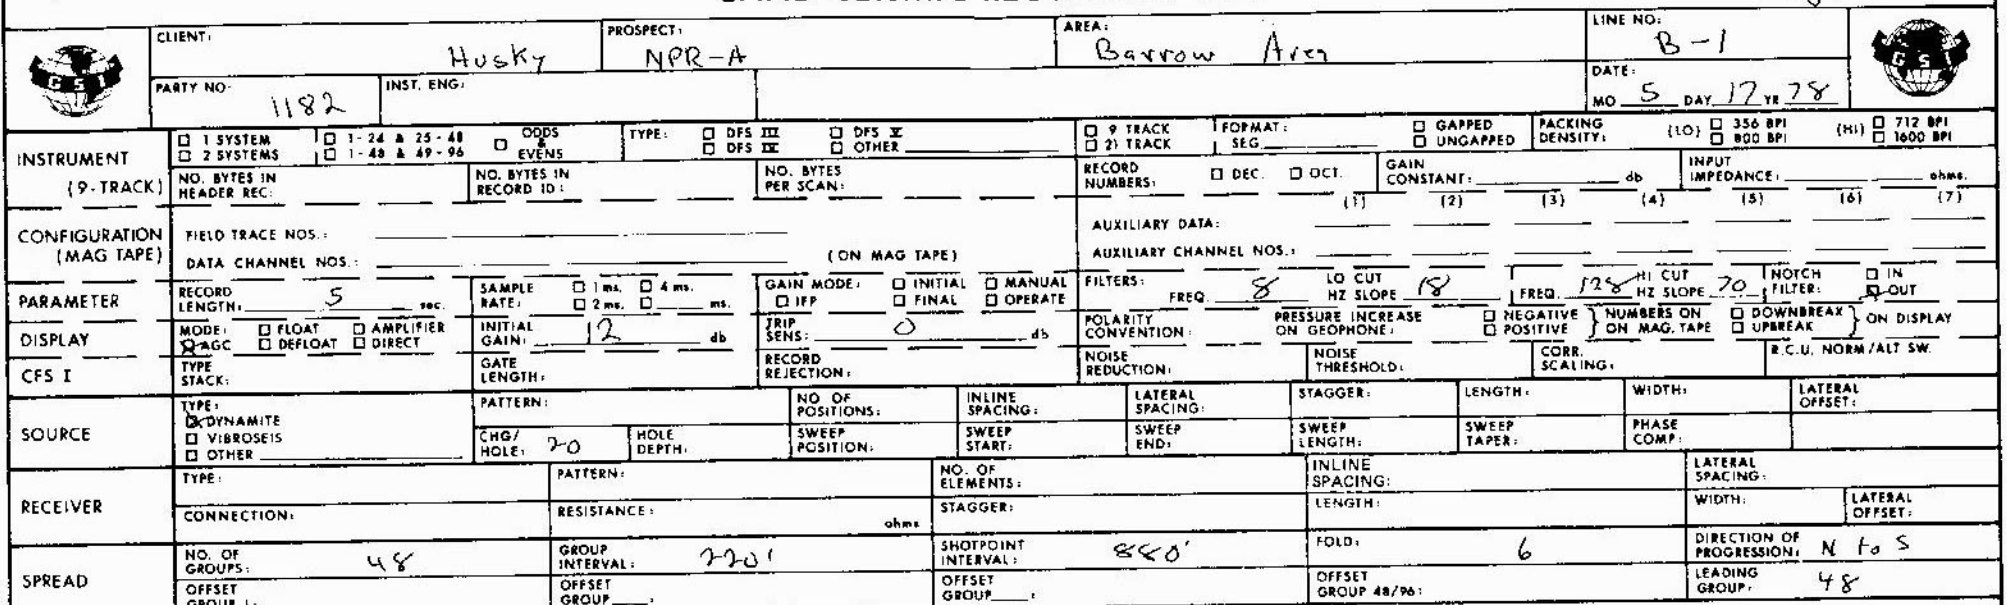 CLIENT: Husky PROSPECT: NPR-A AREA: Barrow Area LINE NO: B-1
GSI GSI
PARTY NO: 1182 INST. ENG: DATE: MO 5 DAY 17 YR 78
INSTRUMENT (9-TRACK)
☐ 1 SYSTEM ☐ 1-24 & 25-48 ☐ ODDS & EVENS TYPE: ☐ DFS III ☐ DFS V ☐ 9 TRACK FORMAT: ☐ GAPPED PACKING DENSITY: (LO) ☐ 356 BPI (HI) ☐ 712 BPI
☐ 2 SYSTEMS ☐ 1-48 & 49-96 ☐ DFS IV ☐ OTHER ☐ 21 TRACK SEG ☐ UNGAPPED ☐ 800 BPI ☐ 1600 BPI
NO. BYTES IN HEADER REC: NO. BYTES IN RECORD ID: NO. BYTES PER SCAN: RECORD NUMBERS: ☐ DEC. ☐ OCT. GAIN CONSTANT: db INPUT IMPEDANCE: ohms.
(1) (2) (3) (4) (5) (6) (7)
CONFIGURATION (MAG TAPE)
FIELD TRACE NOS.: AUXILIARY DATA:
DATA CHANNEL NOS.: (ON MAG TAPE) AUXILIARY CHANNEL NOS.:
PARAMETER RECORD LENGTH: 5 sec. SAMPLE RATE: ☐ 1 ms. ☐ 4 ms. ☐ 2 ms. ☐ ms. GAIN MODE: ☐ INITIAL ☐ MANUAL ☐ IFP ☐ FINAL ☐ OPERATE FILTERS: FREQ. 8 LO CUT HZ SLOPE 18 FREQ. 128 HI CUT HZ SLOPE 70 NOTCH FILTER: ☐ IN ☒ OUT
DISPLAY MODE: ☐ FLOAT ☐ AMPLIFIER ☒ AGC ☐ DEFLOAT ☐ DIRECT INITIAL GAIN: 12 db TRIP SENS: 0 db POLARITY CONVENTION: PRESSURE INCREASE ON GEOPHONE: ☐ NEGATIVE ☐ POSITIVE } NUMBERS ON ON MAG. TAPE ☐ DOWNBREAK ☐ UPBREAK } ON DISPLAY
CFS I TYPE STACK: GATE LENGTH: RECORD REJECTION: NOISE REDUCTION: NOISE THRESHOLD: CORR. SCALING: R.C.U. NORM/ALT SW.
SOURCE TYPE: ☒ DYNAMITE ☐ VIBROSEIS ☐ OTHER
PATTERN: NO OF POSITIONS: INLINE SPACING: LATERAL SPACING: STAGGER: LENGTH: WIDTH: LATERAL OFFSET:
CHG/HOLE: 20 HOLE DEPTH: SWEEP POSITION: SWEEP START: SWEEP END: SWEEP LENGTH: SWEEP TAPER: PHASE COMP:
RECEIVER TYPE: PATTERN: NO. OF ELEMENTS: INLINE SPACING: LATERAL SPACING:
CONNECTION: RESISTANCE: ohms STAGGER: LENGTH: WIDTH: LATERAL OFFSET:
SPREAD NO. OF GROUPS: 48 GROUP INTERVAL: 220' SHOTPOINT INTERVAL: 880' FOLD: 6 DIRECTION OF PROGRESSION: N to S
OFFSET GROUP 1: OFFSET GROUP : OFFSET GROUP : OFFSET GROUP 48/96: LEADING GROUP: 48